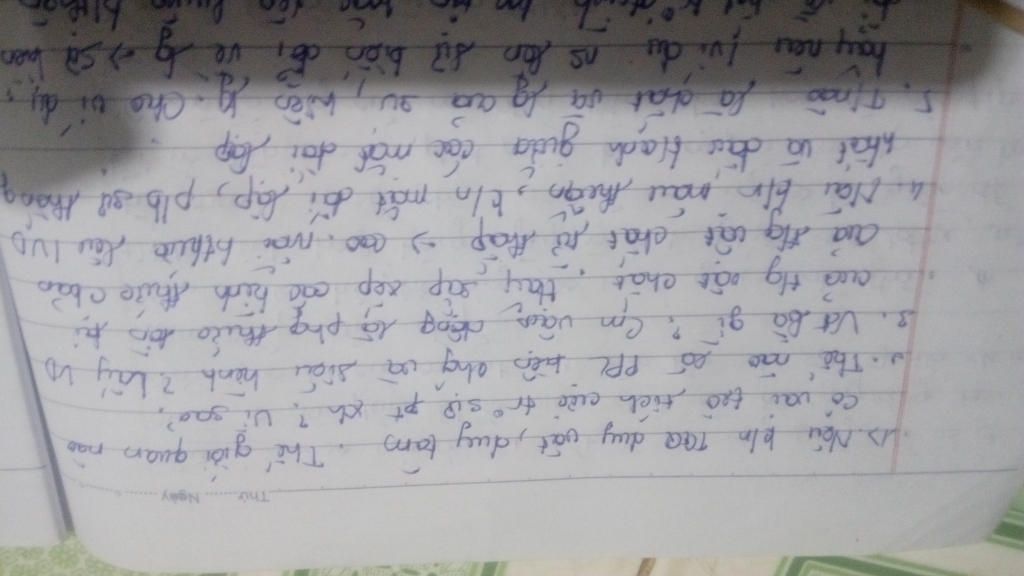 Thứ ......... Ngày .........
1. Nêu k/n TGQ duy vật, duy tâm. Thế giới quan nào
có vai trò tích cực tr° sự pt xh? Vì sao?
2. Thế nào là PPL biện chg và siêu hình? Lấy VD
3. Vđ là gì? Cm vận động là phg thức tồn tại
của thg vật chất. Hãy sắp xếp các hình thức
của thg vật chất từ thấp → cao. Nêu
4. Nêu k/n mâu thuẫn, k/n mặt đối lập, p/b sự thống
nhất và đấu tranh giữa các mặt đối lập
5. T/nào là chất và lg của sv, hiện tg. Cho ví dụ
hãy nêu 1 ví dụ ns lên sự biến đổi về lg → sự biến